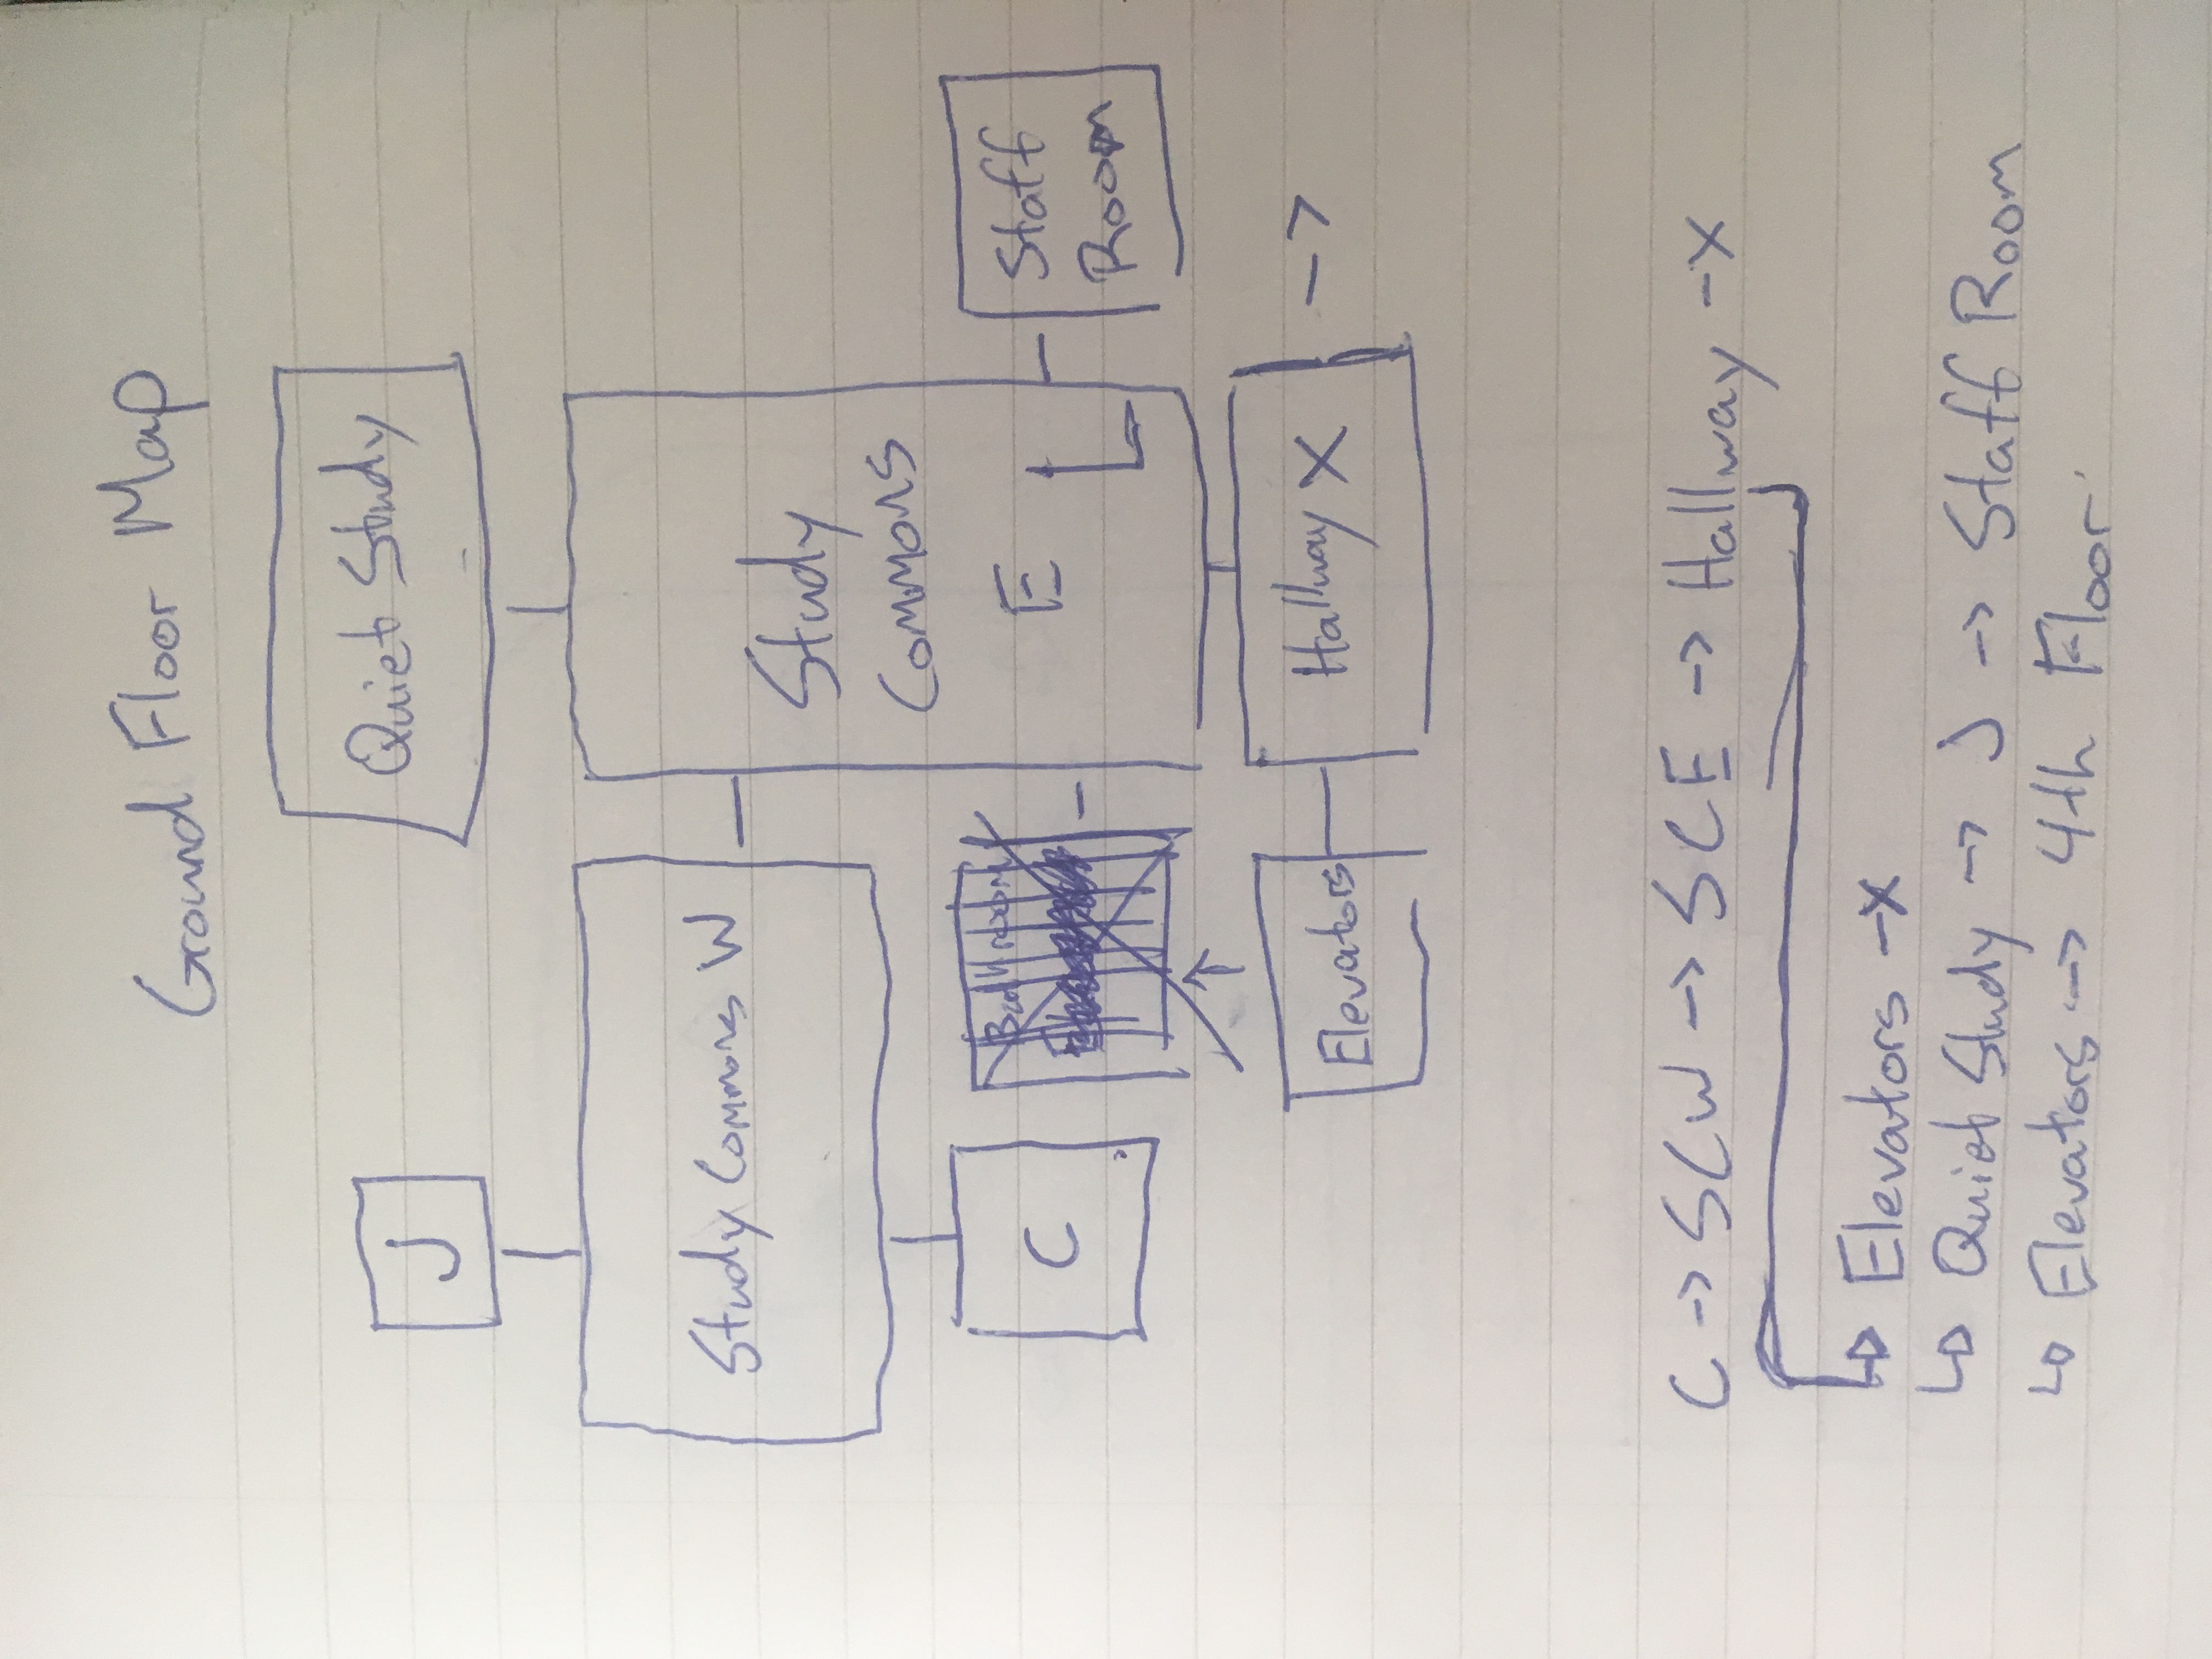 Ground Floor Map
Quiet Study
J
Study Commons W
Study
Commons
E
C
Bathroom
Staff
Room
Elevators
Hallway X
->
C -> SCW -> SCE -> Hallway -x
Elevators -x
Quiet Study -> J -> Staff Room
Elevators -> 4th Floor